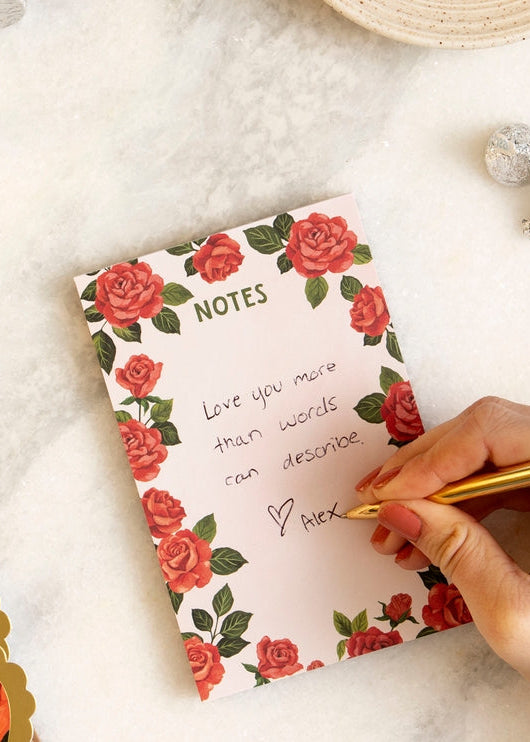 NOTES
Love you more
than words
can describe.
♡ Alex